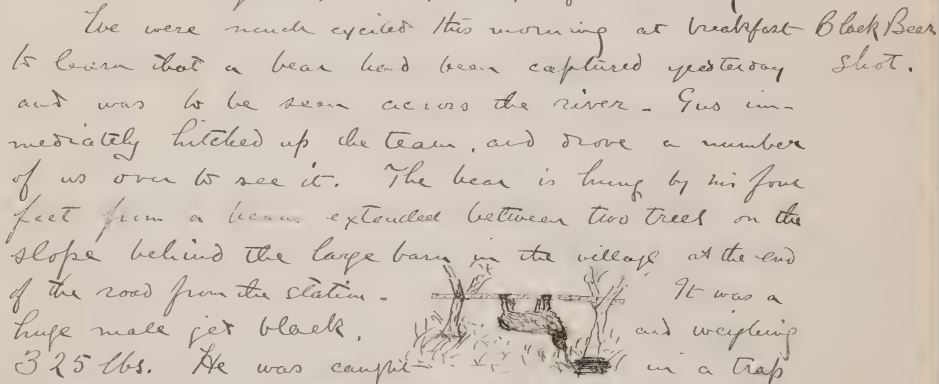 We were much excited this morning at breakfast Black Bear
to learn that a bear had been captured yesterday shot.
and was to be seen across the river - Gus im-
mediately hitched up the team, and drove a number
of us over to see it. The bear is hung by his four
feet from a beam extended between two trees on the
slope behind the large barn in the village at the end
of the road from the station - It was a
huge male jet black, and weighing
325 lbs. He was caught in a trap